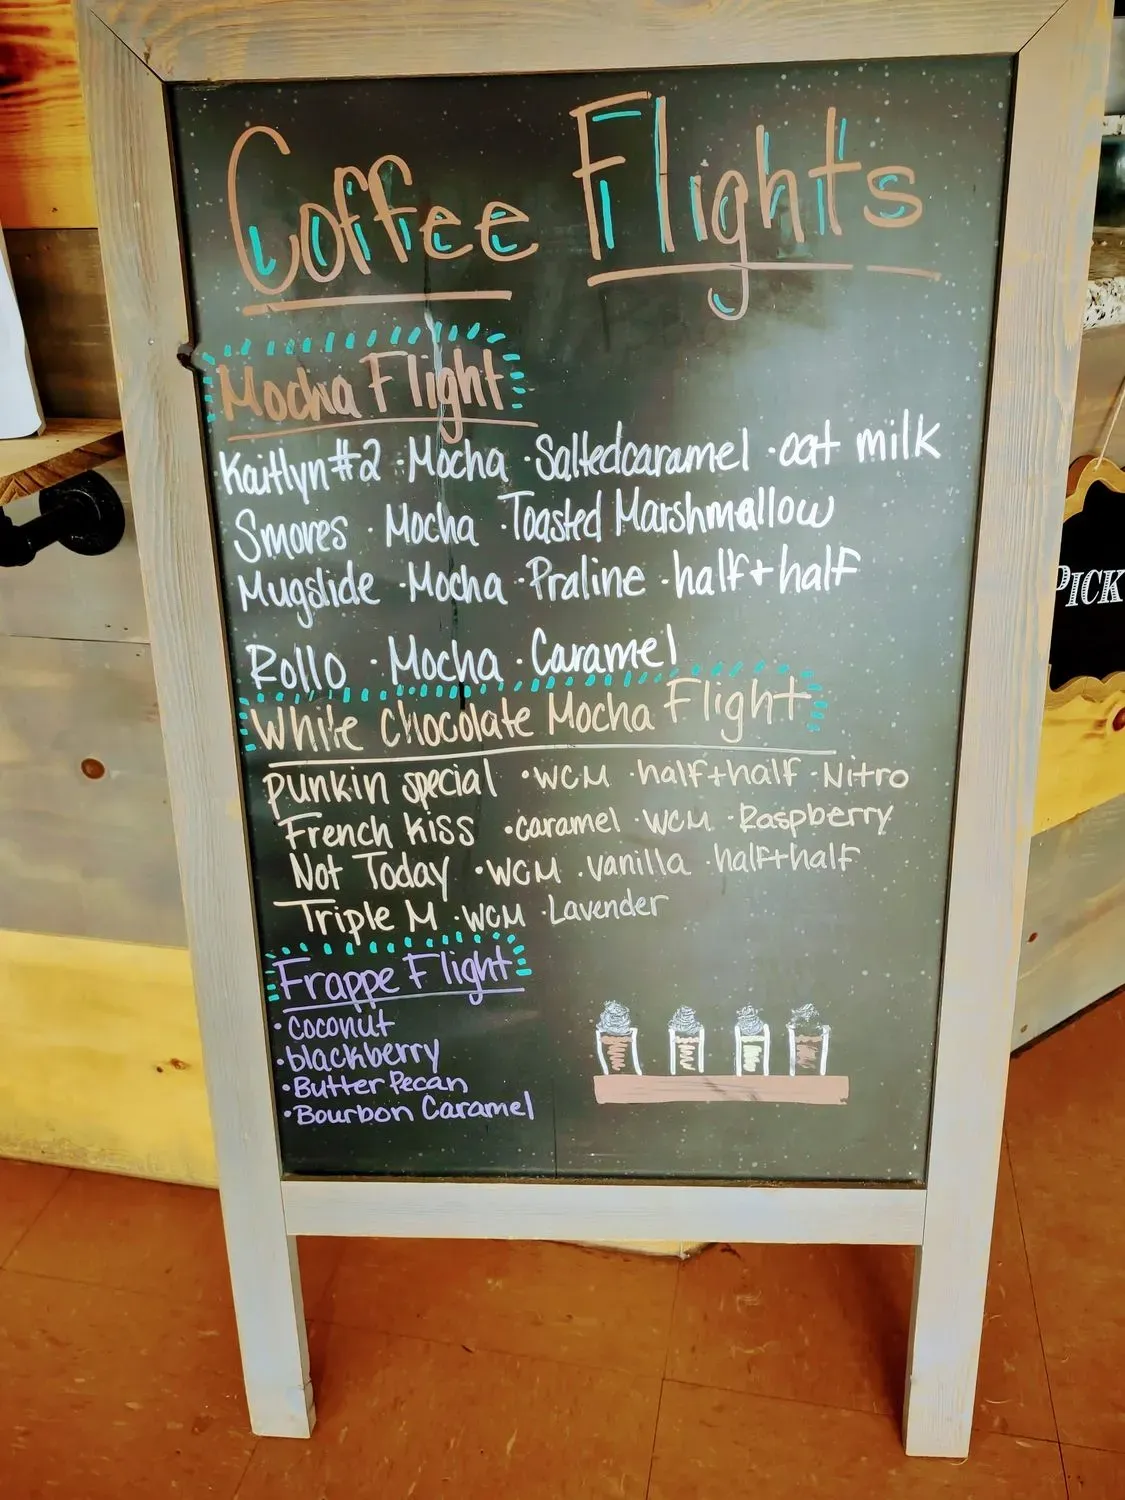 Coffee Flights
Mocha Flight
Kaitlyn#2 · Mocha · Saltedcaramel · oat milk
Smores · Mocha · Toasted Marshmallow
Mugslide · Mocha · Praline · half+half
Rollo · Mocha · Caramel
White Chocolate Mocha Flight
punkin special · WCM · half+half · Nitro
French Kiss · caramel · WCM · Raspberry
Not Today · WCM · vanilla · half+half
Triple M · WCM · Lavender
Frappe Flight
· coconut
· blackberry
· Butter Pecan
· Bourbon Caramel
PICK